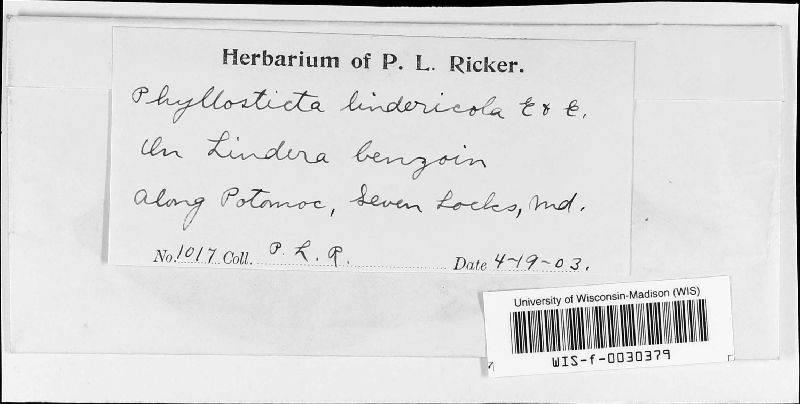 Herbarium of P. L. Ricker.
Phyllosticta lindericola E & E.
On Lindera benzoin
along Potomoc, Seven Locks, Md.
No. 1017 Coll. P. L. R. Date 4-19-03.
University of Wisconsin-Madison (WIS)
WIS-f-0030379